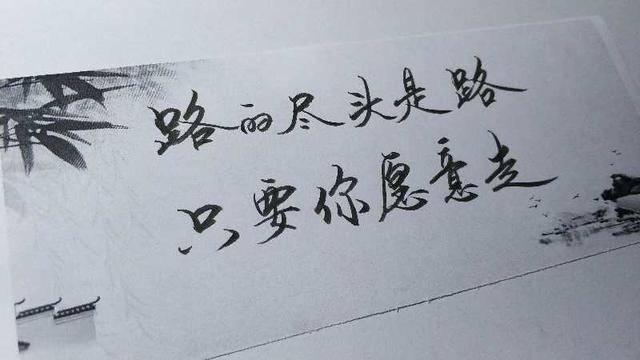 路的尽头是路
只要你愿意走